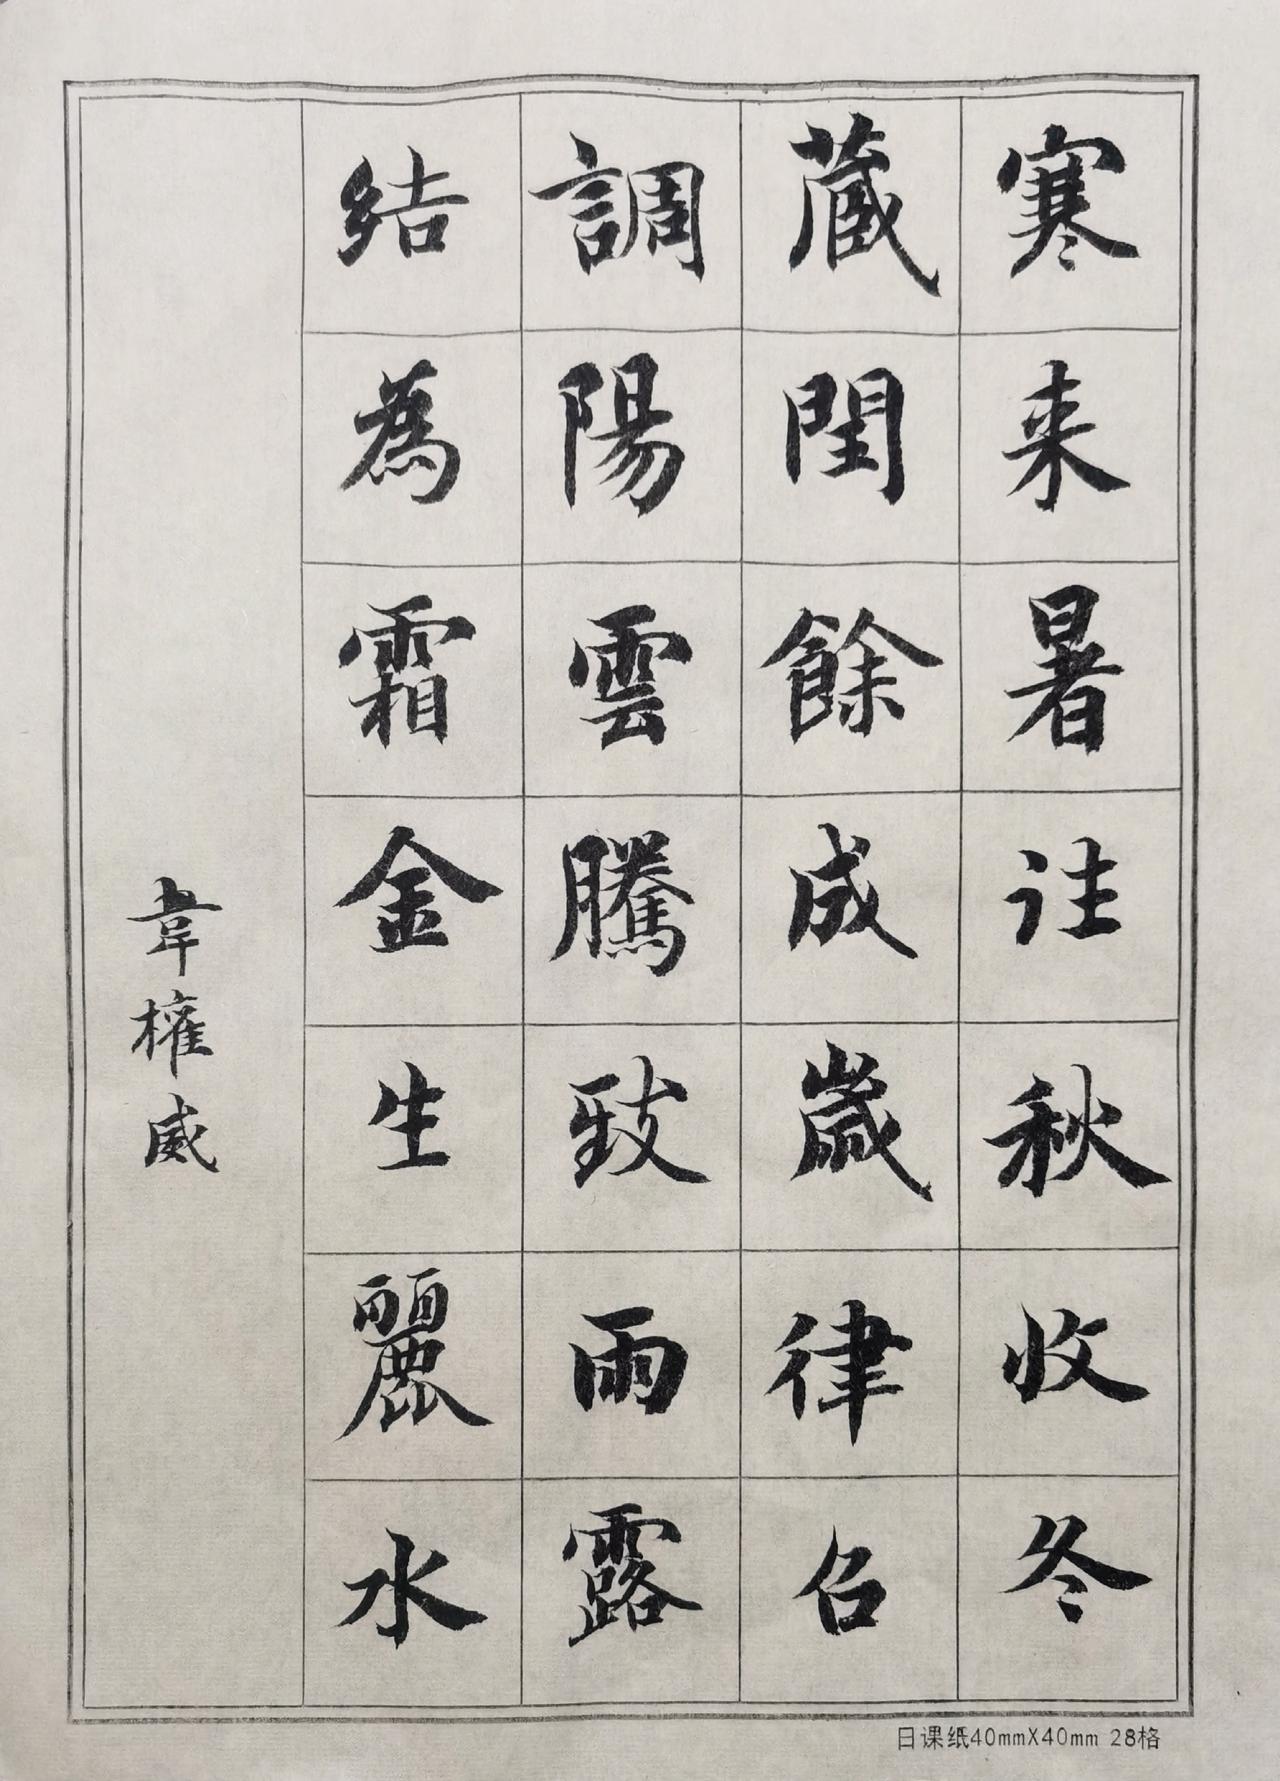 寒来暑往秋收冬
蔵閏餘成嵗律召
調陽雲騰致雨露
結為霜金生麗水
韋權威
日课纸40mmX40mm 28格